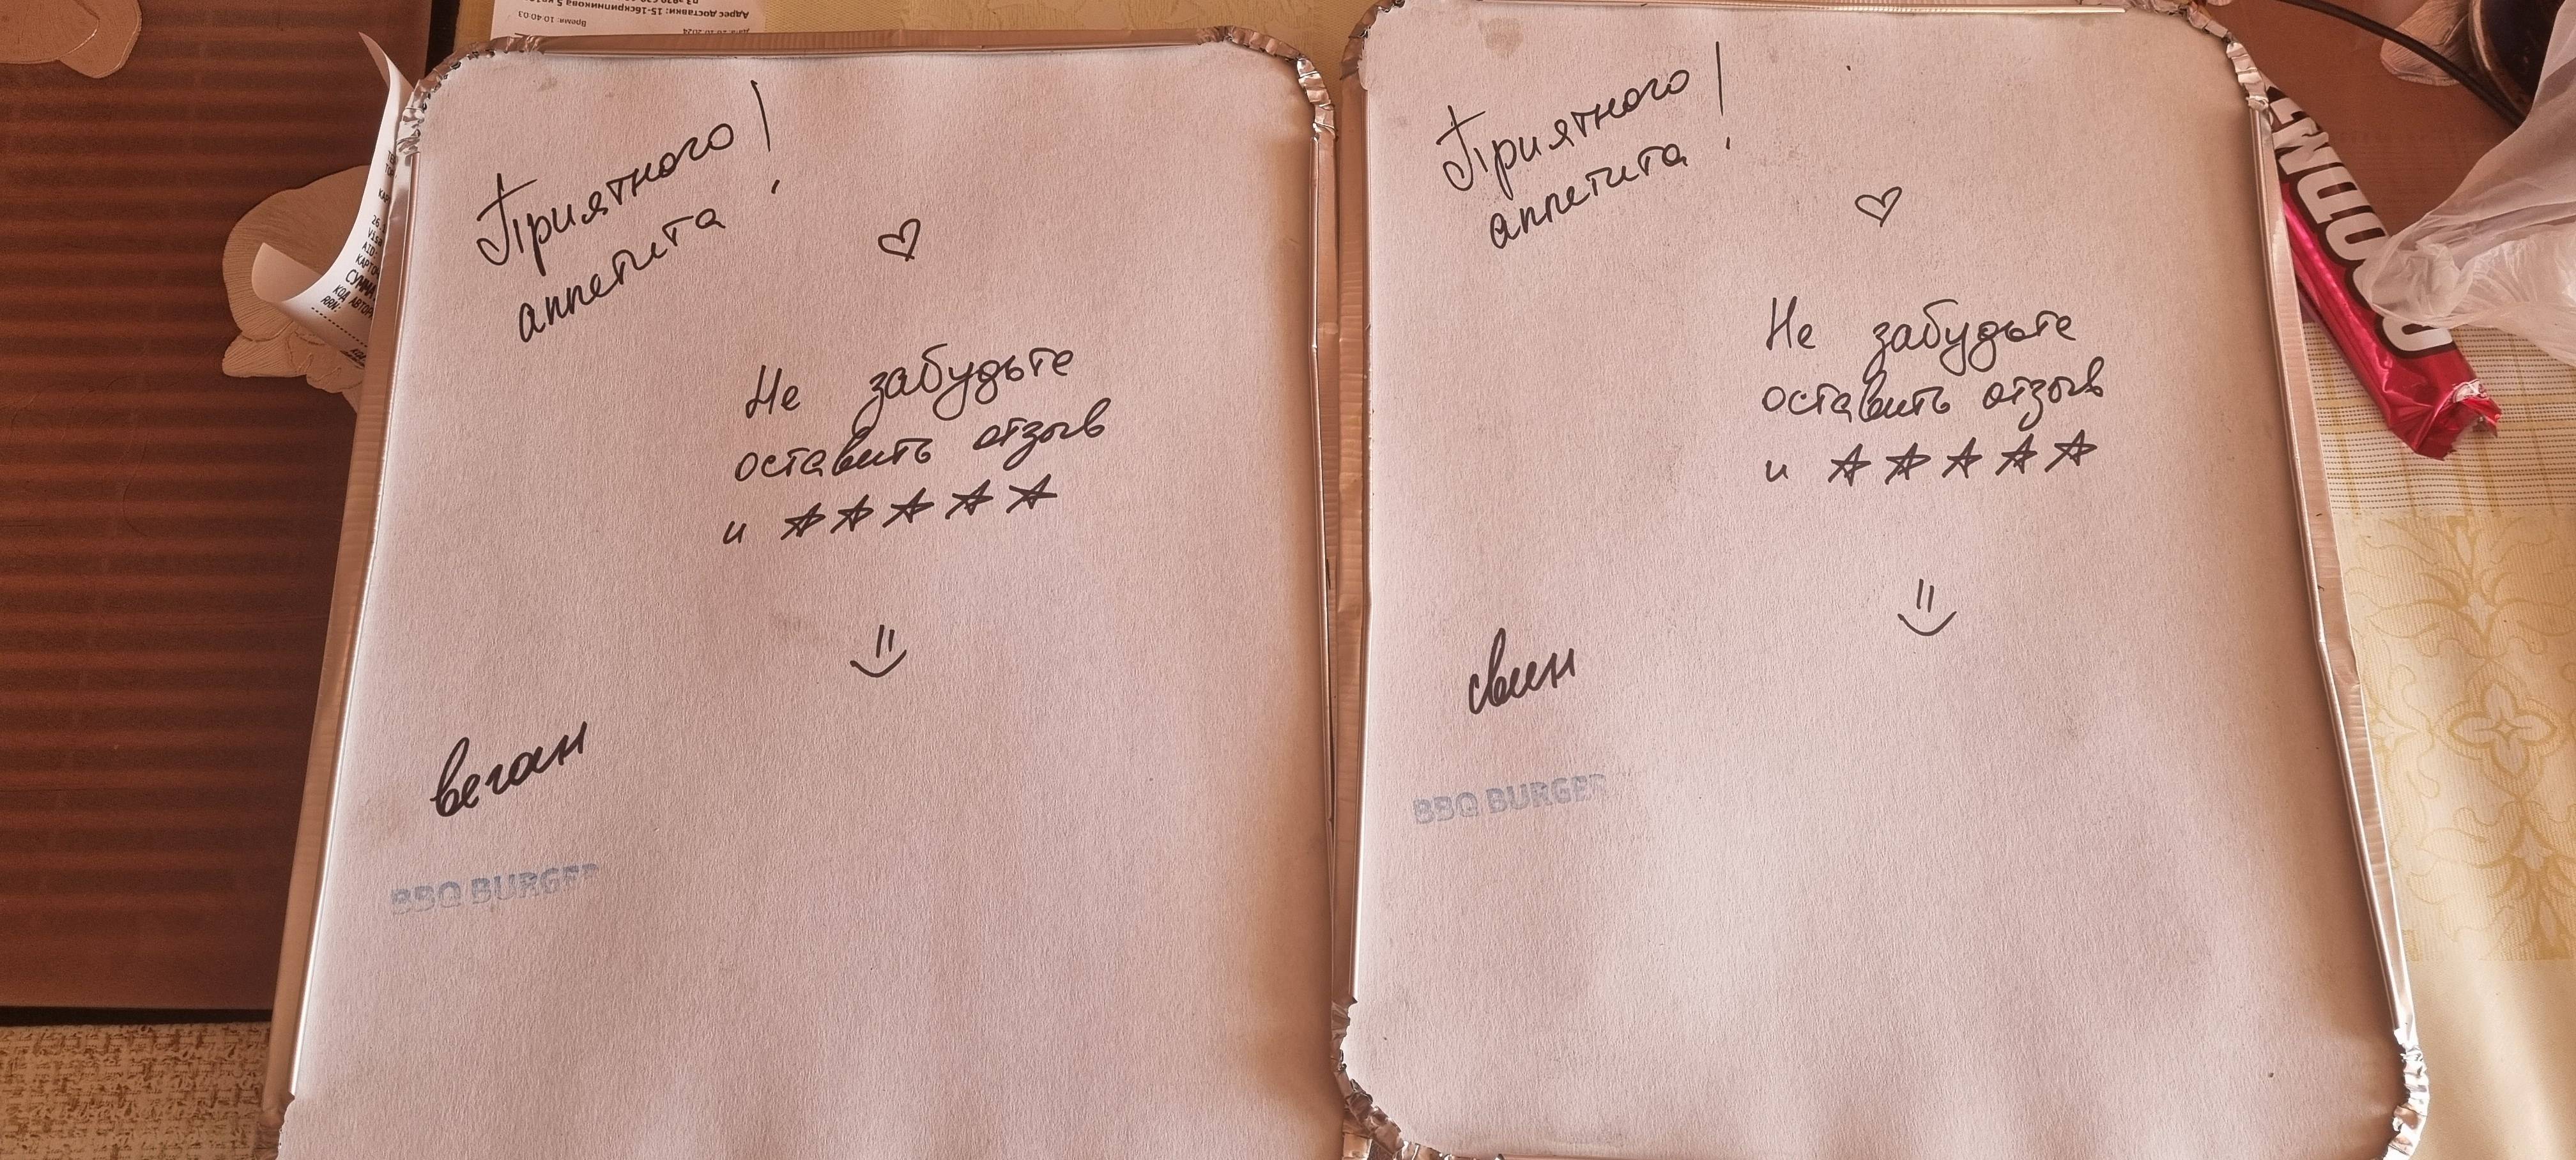 Приятного
аппетита !
Не забудьте
оставить отзыв
и ☆☆☆☆☆
веган
BBQ BURGER
Приятного
аппетита !
Не забудьте
оставить отзыв
и ☆☆☆☆☆
свин
BBQ BURGER
Адрес доставки:
Время: 10:40:03
Visa
AID:
СУММА
RRN: